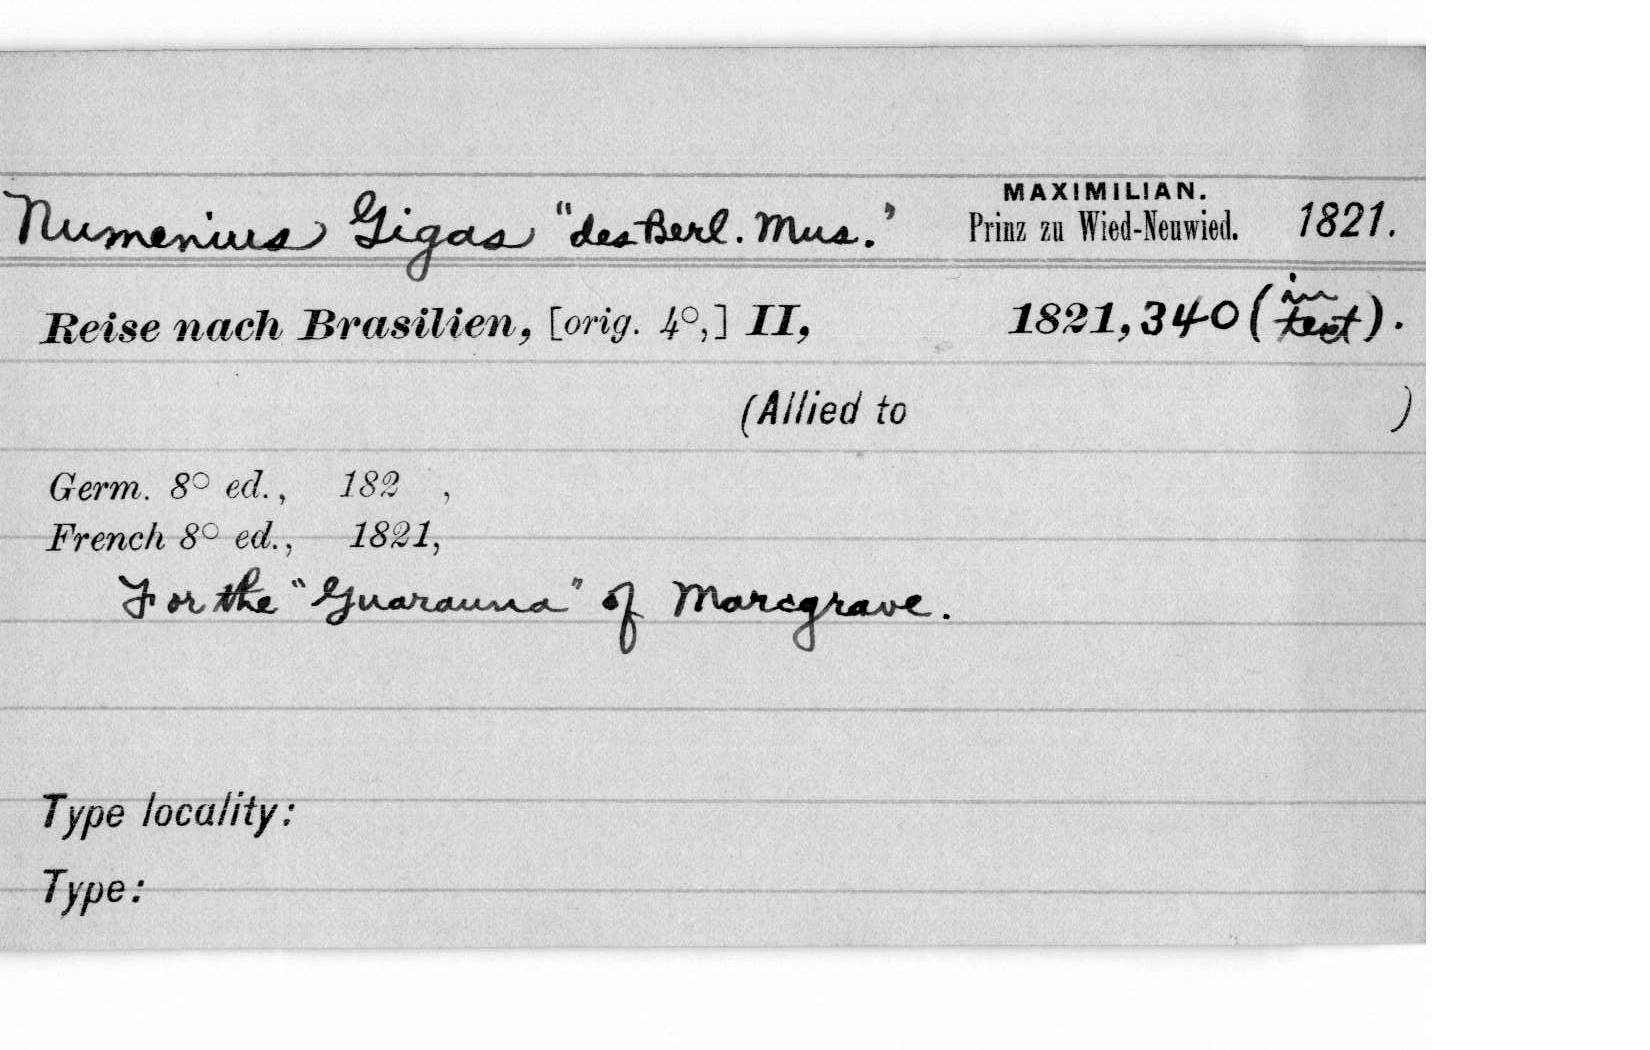 Numenius Gigas "des Berl. Mus." MAXIMILIAN. Prinz zu Wied-Neuwied. 1821.
Reise nach Brasilien, [orig. 4°,] II, 1821, 340 (in text).
(Allied to )
Germ. 8° ed., 182 ,
French 8° ed., 1821,
For the "Guarauna" of Marcgrave.
Type locality:
Type: